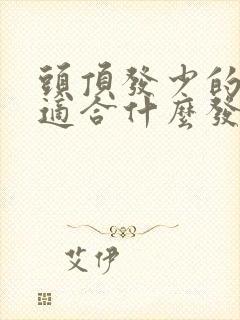 頭頂發少的
適合什麼發
艾伊